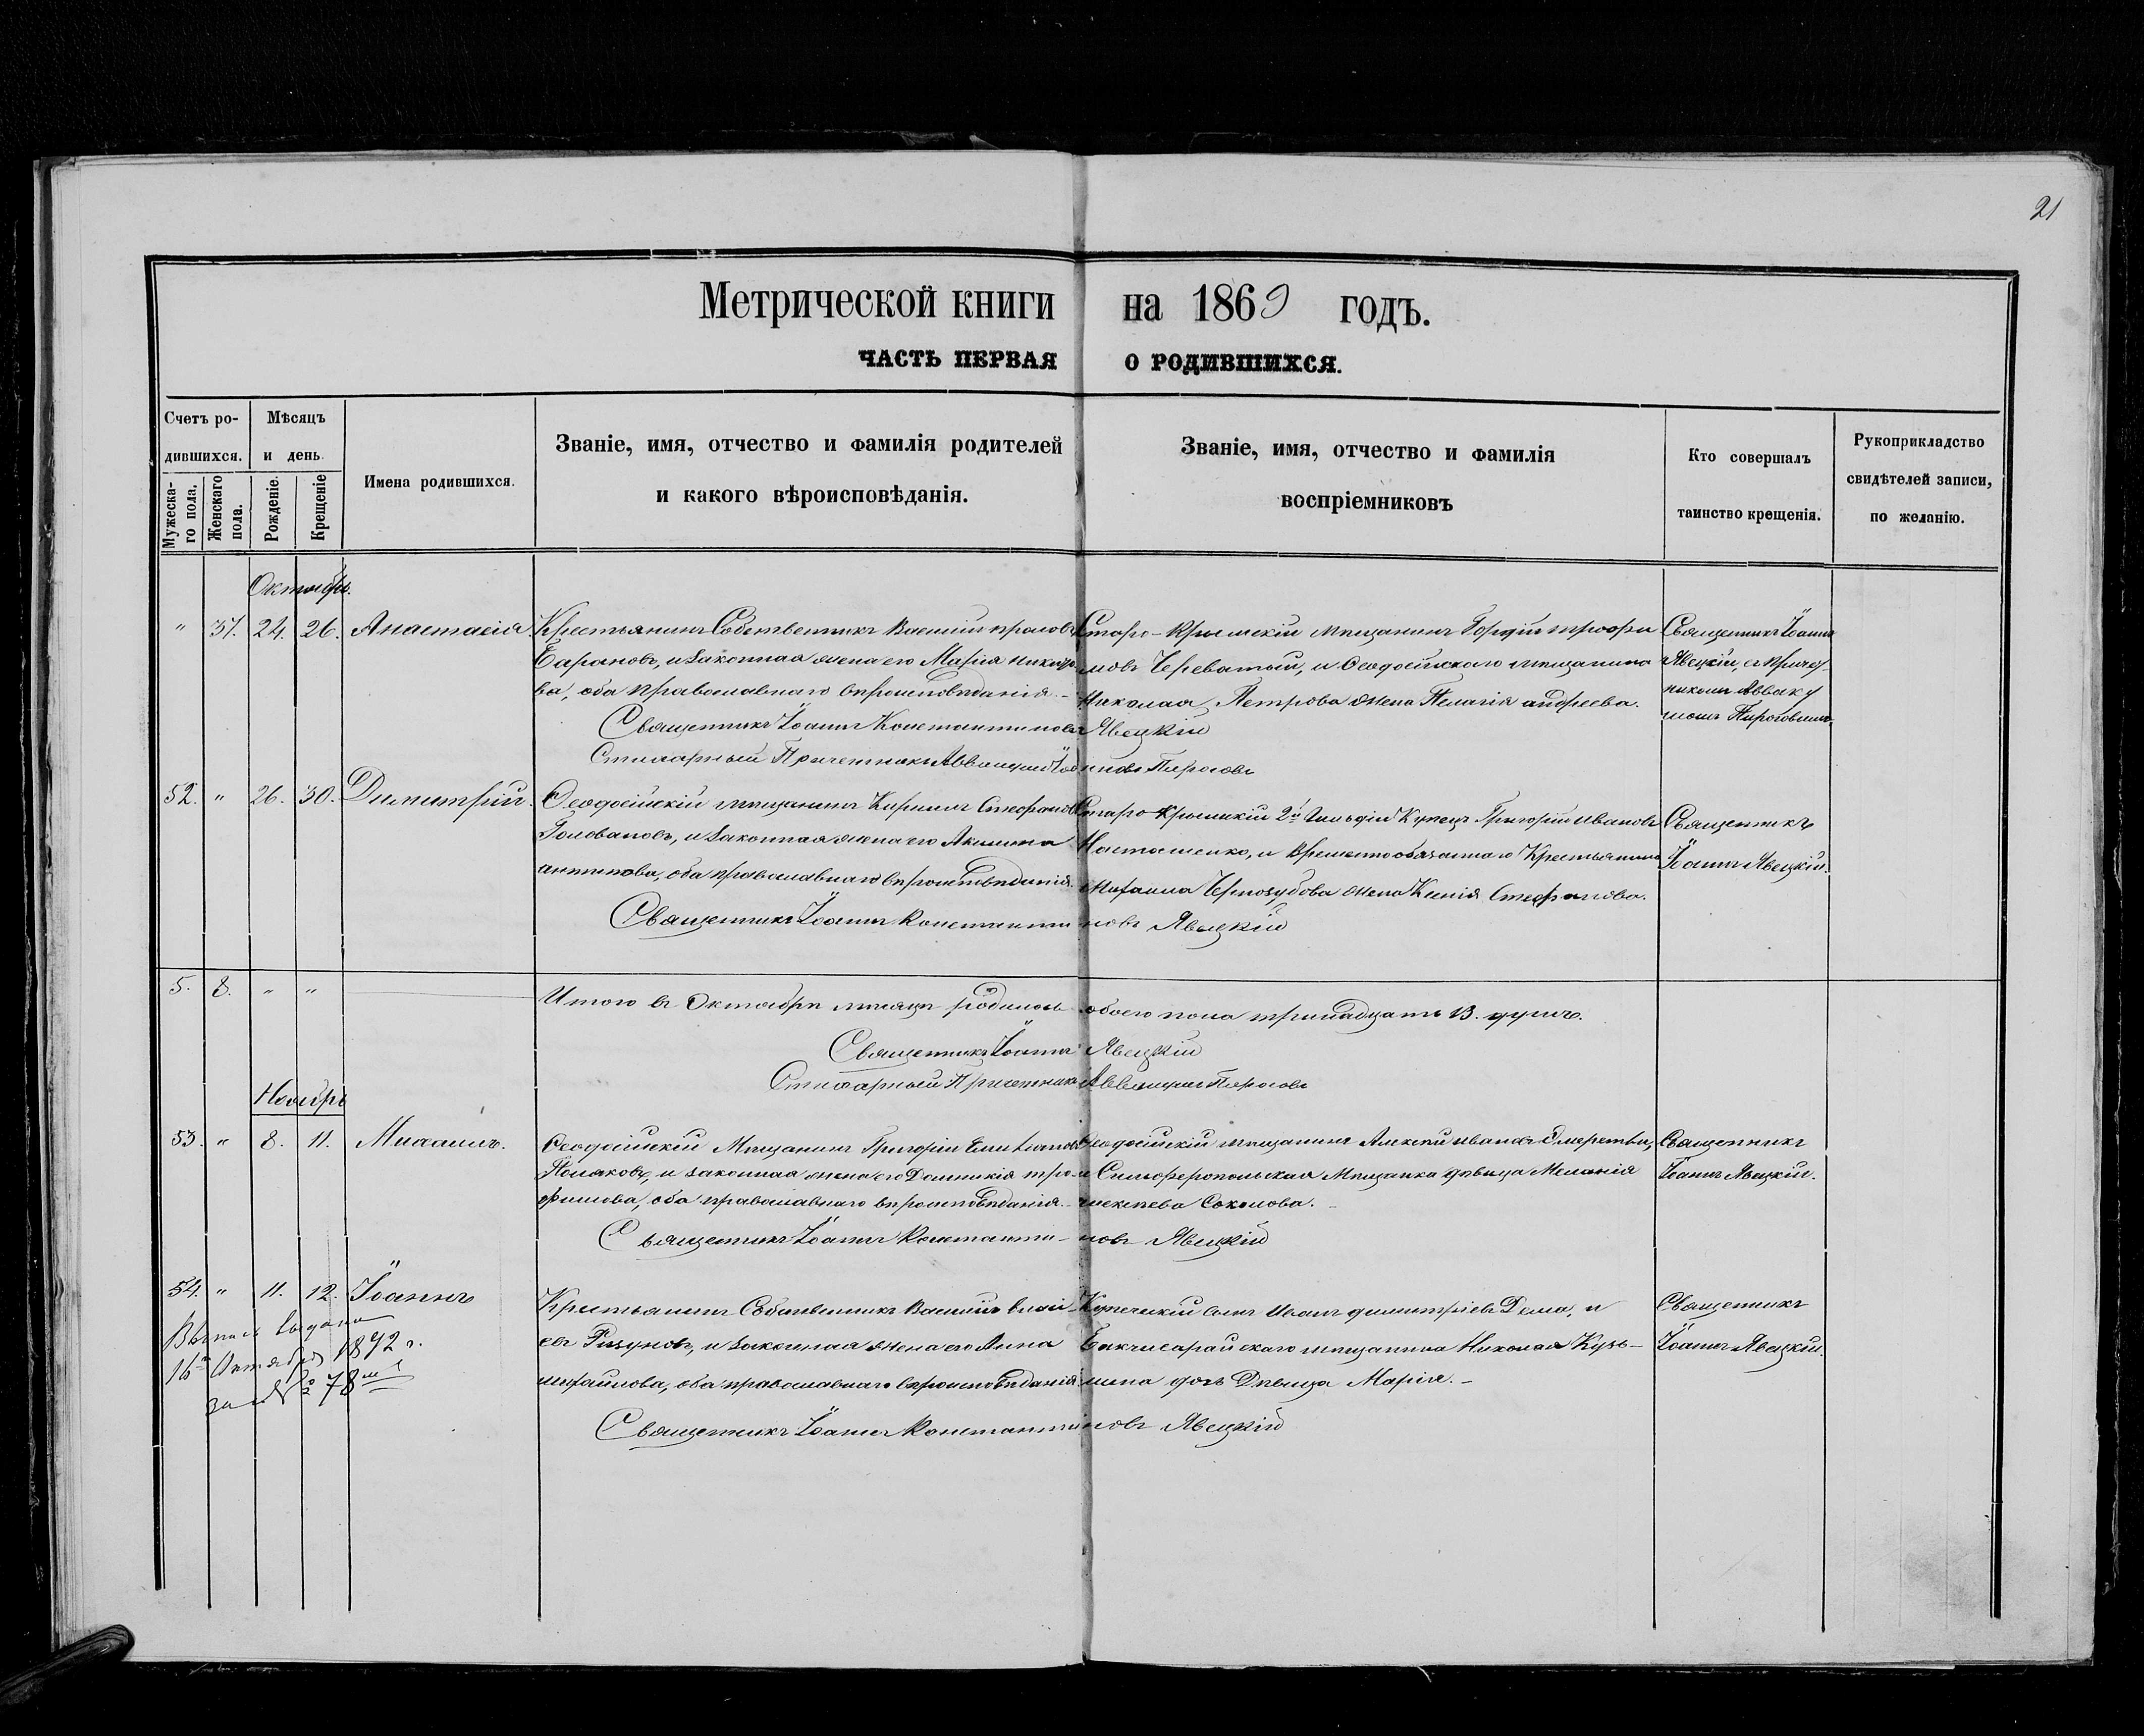 21
Метрической книги на 1869 годъ.
ЧАСТЬ ПЕРВАЯ О РОДИВШИХСЯ.
Счетъ родившихся.
Мужеска-
го пола.
Женскаго
пола.
Мѣсяцъ
и день.
Рожденіе.
Крещеніе
Имена родившихся.
Званіе, имя, отчество и фамилія родителей
и какого вѣроисповѣданія.
Званіе, имя, отчество и фамилія
воспріемниковъ
Кто совершалъ
таинство крещенія.
Рукоприкладство
свидѣтелей записи,
по желанію.
Октябрь.
" 37. 24. 26. Анастасія.
Крестьянинъ Собственникъ Василій
Барановъ, и законная жена его Марія
ва, оба православнаго вѣроисповѣданія.-
Старо-Крымскій мѣщанинъ Гордій Трофи
мовъ Череватый, и Ѳеодосійскаго мѣщанина
Николая Петрова жена Пелагія андреева.
Священникъ Іоаннъ
Явецкій, съ причет-
никомъ Авваку
момъ Пироговымъ
Священникъ Іоаннъ Константиновъ Явецкій
Стихарный Причетникъ Аввакумъ Пироговъ
52. " 26. 30. Димитрій.
Ѳеодосійскій мѣщанинъ Кириллъ Стефановъ
Головановъ, и законная жена его Акилина
антипова, оба православнаго вѣроисповѣданія.
Старо-Крымскій 2й Гильдіи Купецъ Григорій Ивановъ
и временнообязаннаго Крестьянина
Михаила Чернозубова жена Ксенія Стефанова.
Священникъ
Іоаннъ Явецкій.
Священникъ Іоаннъ Константиновъ Явецкій
5. 8. " "
Итого въ Октябрѣ мѣсяцѣ родилось обоего пола тринадцать 13. душъ.
Священникъ Іоаннъ Явецкій
Стихарный Причетникъ Аввакумъ Пироговъ
Ноябрь
53. " 8. 11. Михаилъ.
Ѳеодосійскій Мѣщанинъ Григорій Емиліановъ
Поляковъ, и законная жена его Домникія тро-
фимова, оба православнаго вѣроисповѣданія.-
Ѳеодосійскій мѣщанинъ Алексѣй Ивановъ
и Симферопольская Мѣщанка дѣвица Меланія
алексѣева Соколова.-
Священникъ
Іоаннъ Явецкій.
Священникъ Іоаннъ Константи-новъ Явецкій
54. " 11. 12. Іоаннъ
Выпись выдана
16го Октября 1892 г.
за № 78мъ
Крестьянинъ Собственникъ Василій
евъ и законная жена его Анна
михайлова, оба православнаго вѣроисповѣданія.
Купеческій сынъ Иванъ димитріевъ Дема, и
Бакчисарайскаго мѣщанина Николая Кузь-
мина дочь Дѣвица Марія.-
Священникъ
Іоаннъ Явецкій.
Священникъ Іоаннъ Константиновъ Явецкій